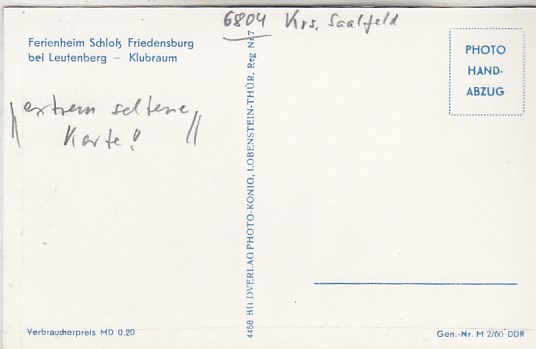 6804 Krs. Saalfeld
Ferienheim Schloß Friedensburg
bei Leutenberg – Klubraum
PHOTO
HAND-
ABZUG
"extrem seltene
Karte!"
4458 BILDVERLAG PHOTO-KÖNIG, LOBENSTEIN-THÜR. Reg Nr 7
Verbraucherpreis MD 0.20
Gen.-Nr. M 2/60 DDR